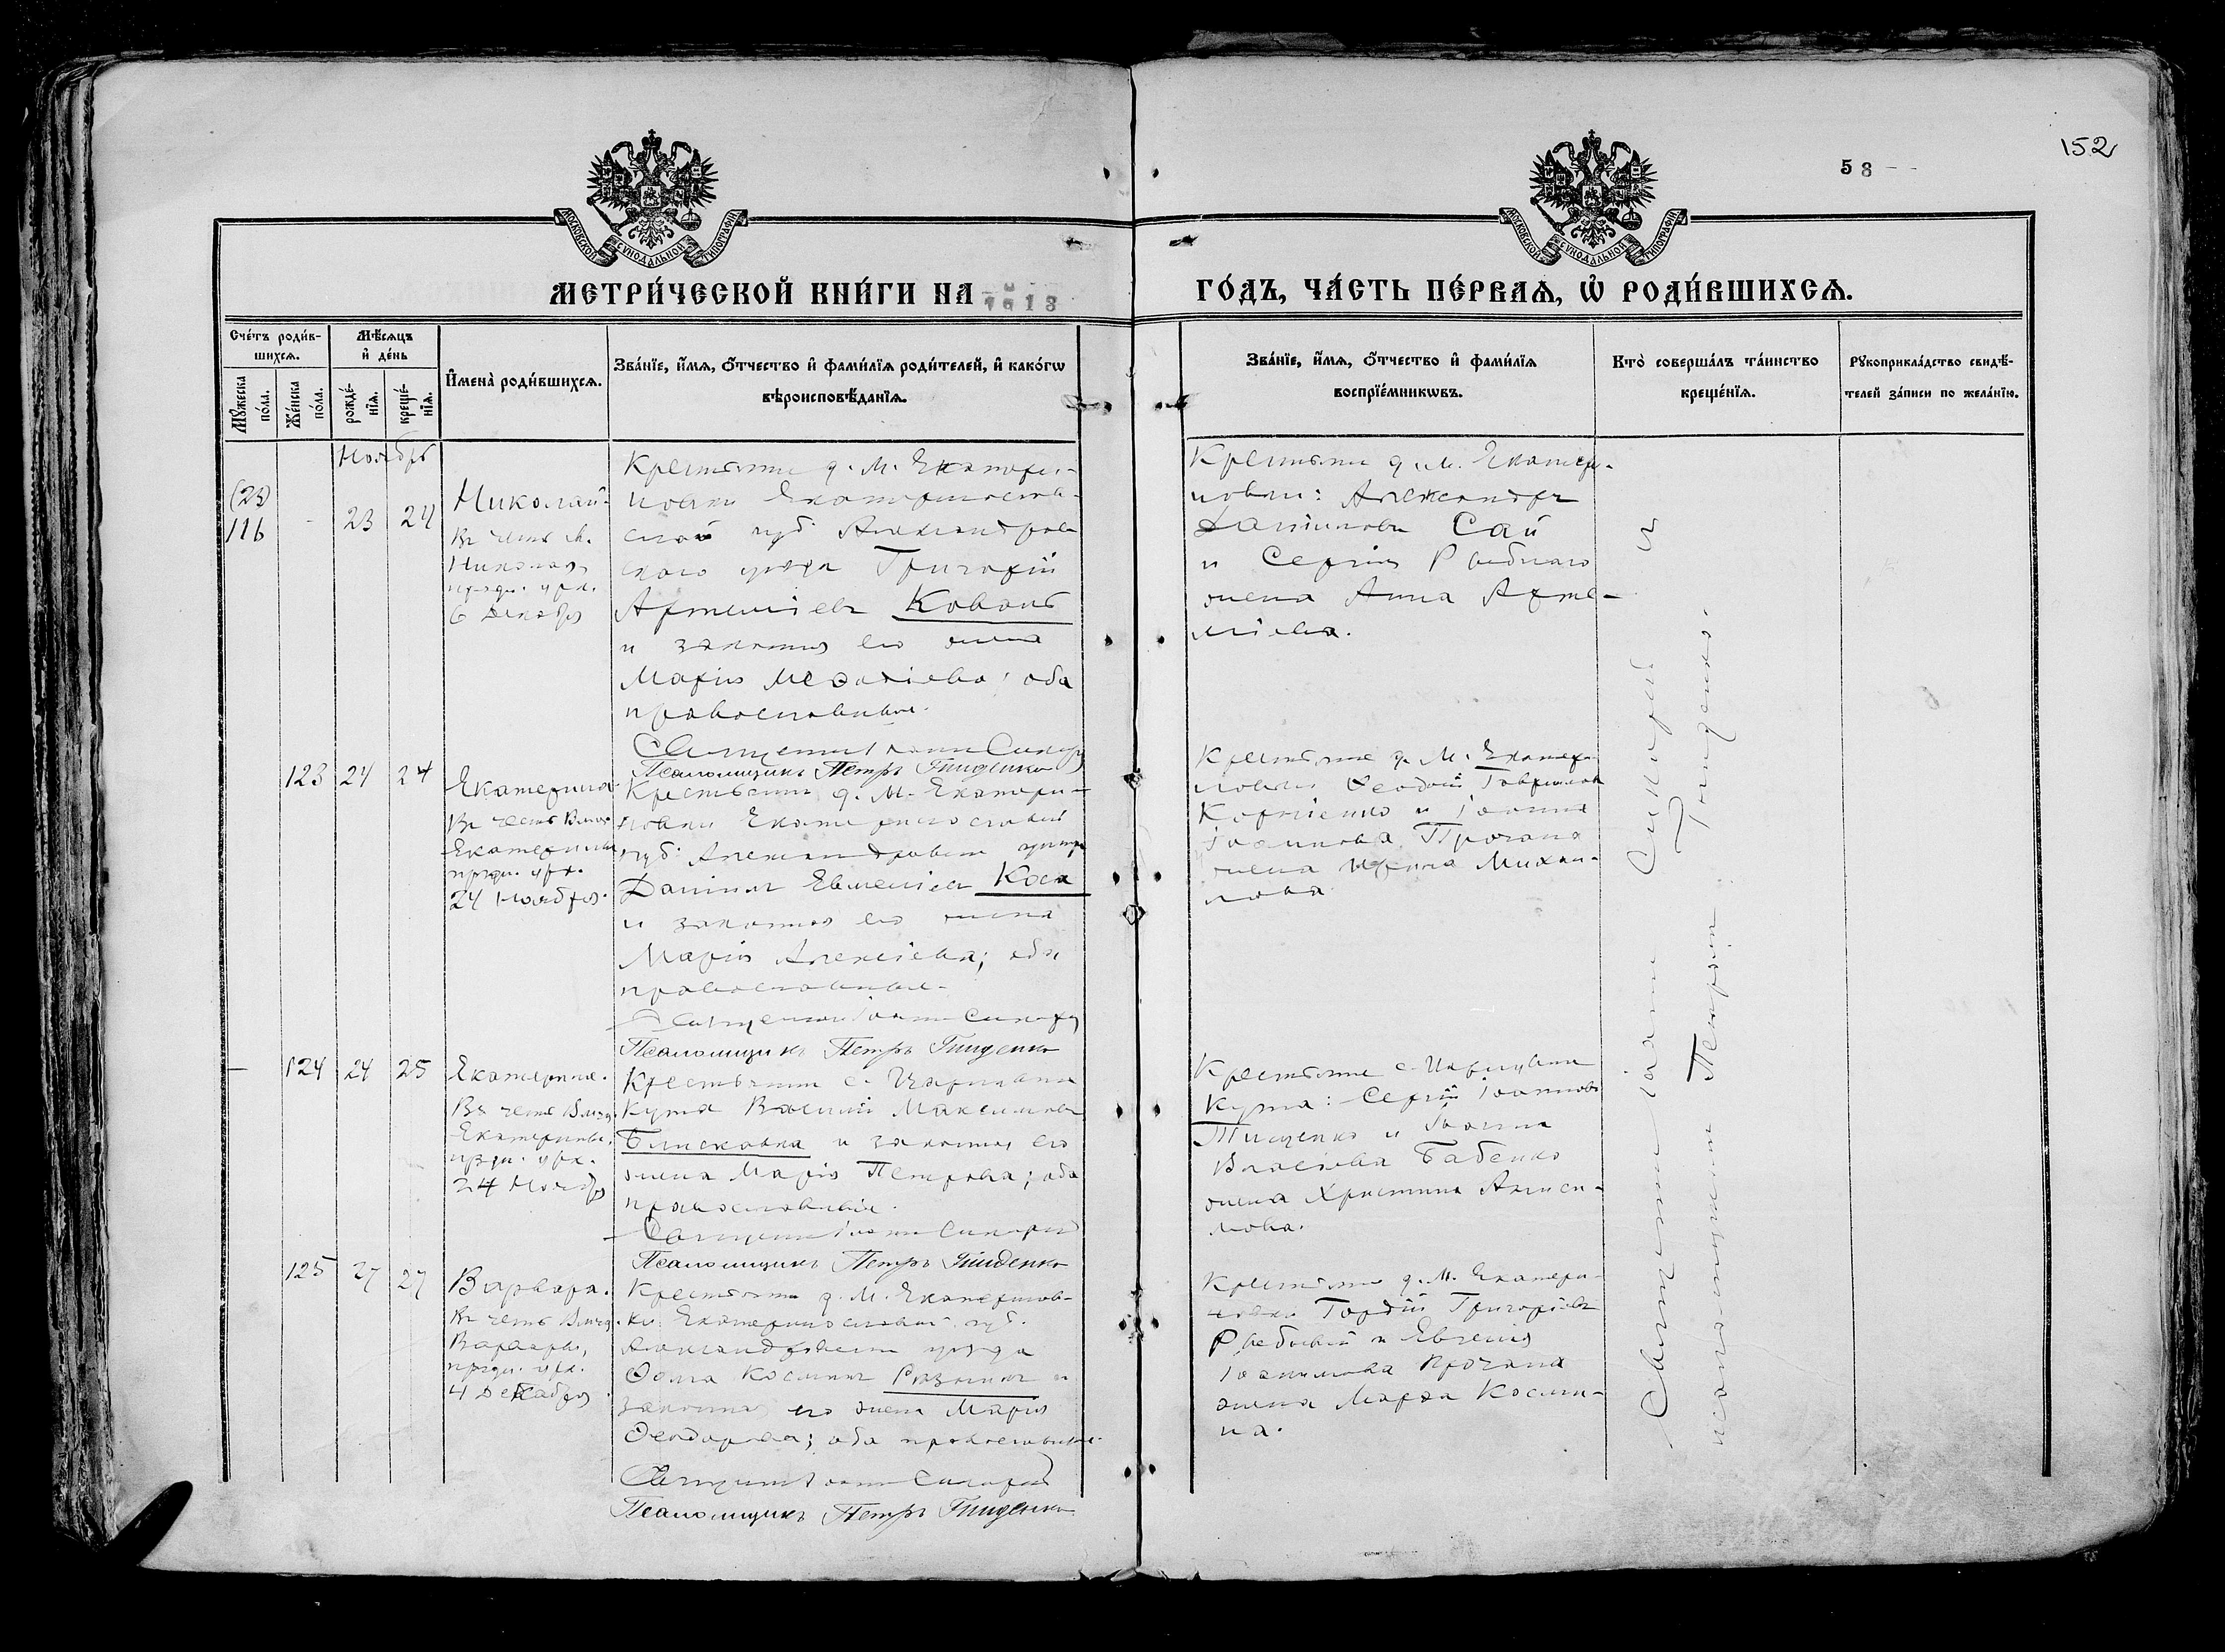 152
58
МОСКОВСКОЙ СУНОДАЛЬНОЙ ТИПОГРАФІИ
МОСКОВСКОЙ СУНОДАЛЬНОЙ ТИПОГРАФІИ
МЕТРИ́ЧЕСКОЙ КНИ́ГИ НА 1913
ГО́ДЪ, ЧА́СТЬ ПЕ́РВАѦ, Ѡ҆ РОДИ́ВШИХСѦ.
Сче́тъ роди́в-
шихсѧ.
Мꙋ́жеска по́ла.
Же́нска по́ла.
Мѣ́сѧцъ
и҆ де́нь
рожде́-
нїѧ.
креще́-
нїѧ.
И҆мена̀ роди́вшихсѧ.
Зва́нїе, и҆́мѧ, о҆́тчество и҆ фами́лїѧ роди́телей, и҆ како́гѡ
вѣроисповѣ́данїѧ.
Зва́нїе, и҆́мѧ, о҆́тчество и҆ фами́лїѧ
воспрїе́мникѡвъ.
Кто̀ соверша́лъ та́инство
креще́нїѧ.
Рꙋкоприкла́дство свидѣ́-
телей за́писи по жела́нїю.
Ноябрь
(23)
116
-
23
24
Николай
Въ честь св.
Николая,
празд. црк.
6 Декабря
Крестьяне д. М. Екатери-
новки Екатеринослав-
ской губ. Александров
скаго уѣзда Григорій
Артеміевъ Коваль
и законная его жена
Марія Меѳодіева; оба
православные.
Священникъ Іоаннъ
Псаломщикъ Петръ Гниденко
Крестьяне д. М. Екатери-
новки: Александръ
Даніиловъ Сай
и Сергія Рябнаго
жена Анна Арте-
міева.
123
24
24
Екатерина
Въ честь Влмч.
Екатерины
празд. црк.
24 Ноября.
Крестьяне д. М. Екатери-
новки Екатеринославской
губ. Александровск. уѣзда
Даніилъ Евменіевъ Коса
и законная его жена
Марія Алексіева; оба
православные.
Священникъ Іоаннъ
Псаломщикъ Петръ Гниденко
Крестьяне д. М. Екатери-
новки Ѳеодосій Гавриловъ
Корніенко и Іоанна
Іоакимова Прочана
жена Ирина Михаи-
лова
—
124
24
25
Екатерина.
Въ честь Влмч.
Екатерины,
празд. црк.
24 Ноября
Крестьяне с. Царицына
Кута Василій Максимовъ
Блисковка и законная его
жена Марія Петрова; оба
православные.
Священникъ Іоаннъ
Псаломщикъ Петръ Гниденко
Крестьяне с. Царицына
Кута: Сергій Іоанновъ
Тищенко и Іоанна
Власіева Бабенко
жена Христина Аниси-
мова.
125
27
27
Варвара.
Въ честь Влмч.
Варвары,
празд. црк.
4 Декабря
Крестьяне д. М. Екатеринов-
ки Екатеринославской губ.
Александровск. уѣзда
Ѳома Косминъ и
законная его жена Марія
Ѳеодорова; оба православные.
Священникъ Іоаннъ
Псаломщикъ Петръ Гниденко
Крестьяне д. М. Екатери-
новки Гордій Григоріевъ
Рябный и Евгенія
Іоакимова Прочана
жена Марѳа Косми-
на.
Священникъ Іоаннъ и
псаломщикъ Петръ Гниденко.